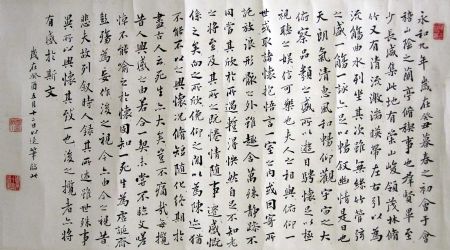 永和九年歲在癸丑暮春之初會于會
稽山陰之蘭亭脩稧事也群賢畢至
少長咸集此地有崇山峻領茂林脩
竹又有清流激湍暎帶左右引以為
流觴曲水列坐其次雖無絲竹管弦
之盛一觴一詠亦足以暢敘幽情是日也
天朗氣清惠風和暢仰觀宇宙之大
俯察品類之盛所以遊目騁懷足以極
視聽之娛信可樂也夫人之相與俯仰
一世或取諸懷抱悟言一室之內或因寄
所託放浪形骸之外雖趣舍萬殊靜躁不
同當其欣於所遇蹔得於己怏然自足不知老
之將至及其所之既惓情隨事遷感慨
係之矣向之所欣俛仰之閒以為陳迹猶
不能不以之興懷況脩短隨化終期於
盡古人云死生亦大矣豈不痛哉每攬
昔人興感之由若合一契未嘗不臨文嗟
悼不能喻之於懷固知一死生為虛誕齊
彭殤為妄作後之視今亦由今之視昔
悲夫故列敘時人錄其所述雖世殊事
異所以興懷其致一也後之攬者亦將
有感於斯文
歲在癸酉五月十二日以